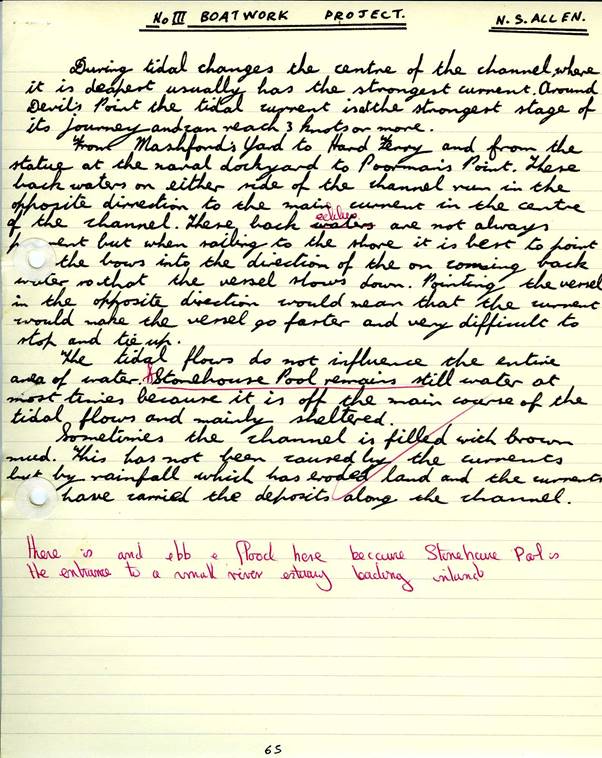 No III BOATWORK PROJECT. N. S. ALLEN.
During tidal changes the centre of the channel, where
it is deapest usually has the strongest current. Around
Devil's Point the tidal current is at the strongest stage of
its journey and can reach 3 knots or more.
From Mashford's Yard to Hard Ferry and from the
statue at the naval dockyard to Poorman's Point. These
back waters on either side of the channel run in the
opposite dirrection to the main current in the centre
of the channel. These back waters eddies are not always
but when sailing to the shore it is best to point
the bows into the direction of the on comeing back
water, so that the vessel slows down. Pointing the vessel
in the opposite direction would mean that the current
would make the vessel go faster and very difficult to
stop and tie up.
The tidal flows do not influence the entire
area of water. Stonehouse Pool remains still water at
most times because it is off the main course of the
tidal flows and mainly sheltered.
Sometimes the channel is filled with brown
mud. This has not been caused by the currents
but by rainfall which has eroded land and the currents
have carried the deposits along the channel.
there is and ebb & flood here because Stonehouse Pool is
the entrance to a small river estuary leading inland
65